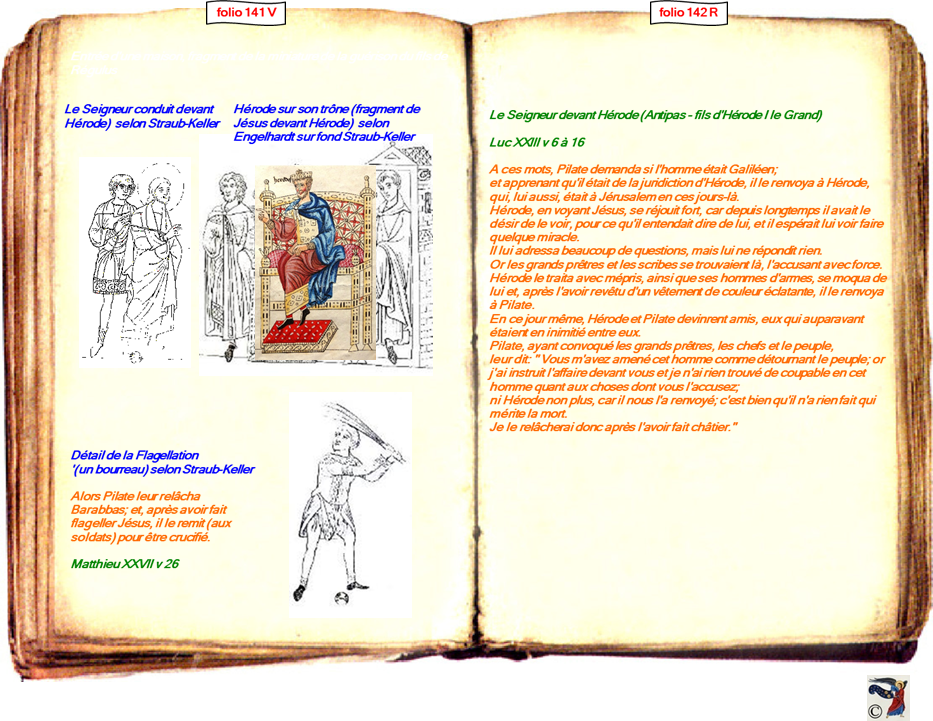 folio 141 V
folio 142 R
Le Seigneur conduit devant
Hérode) selon Straub-Keller
Hérode sur son trône (fragment de
Jésus devant Hérode) selon
Engelhardt sur fond Straub-Keller
herodes
Détail de la Flagellation
'(un bourreau) selon Straub-Keller
Alors Pilate leur relâcha
Barabbas; et, après avoir fait
flageller Jésus, il le remit (aux
soldats) pour être crucifié.
Matthieu XXVII v 26
Le Seigneur devant Hérode (Antipas - fils d'Hérode I le Grand)
Luc XXIII v 6 à 16
A ces mots, Pilate demanda si l'homme était Galiléen;
et apprenant qu'il était de la juridiction d'Hérode, il le renvoya à Hérode,
qui, lui aussi, était à Jérusalem en ces jours-là.
Hérode, en voyant Jésus, se réjouit fort, car depuis longtemps il avait le
désir de le voir, pour ce qu'il entendait dire de lui, et il espérait lui voir faire
quelque miracle.
Il lui adressa beaucoup de questions, mais lui ne répondit rien.
Or les grands prêtres et les scribes se trouvaient là, l'accusant avec force.
Hérode le traita avec mépris, ainsi que ses hommes d'armes, se moqua de
lui et, après l'avoir revêtu d'un vêtement de couleur éclatante, il le renvoya
à Pilate.
En ce jour même, Hérode et Pilate devinrent amis, eux qui auparavant
étaient en inimitié entre eux.
Pilate, ayant convoqué les grands prêtres, les chefs et le peuple,
leur dit: " Vous m'avez amené cet homme comme détournant le peuple; or
j'ai instruit l'affaire devant vous et je n'ai rien trouvé de coupable en cet
homme quant aux choses dont vous l'accusez;
ni Hérode non plus, car il nous l'a renvoyé; c'est bien qu'il n'a rien fait qui
mérite la mort.
Je le relâcherai donc après l'avoir fait châtier."
©